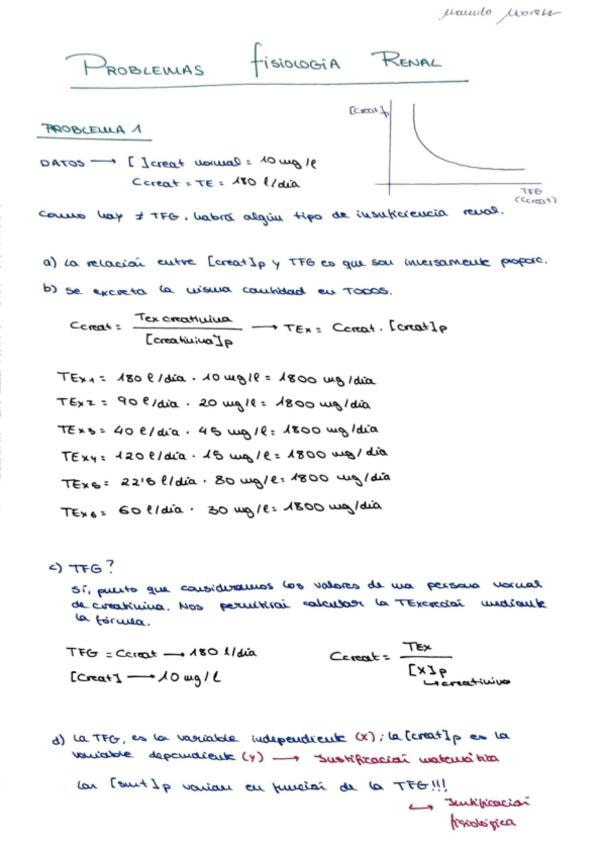 Manolo Moren
PROBLEMAS fisiologia RENAL
PROBLEMA 1
[Creat]p
TFG
(Ccreat)
DATOS → [ ]creat normal = 10 mg/l
Ccreat = TE = 180 l/día
Como hay ≠ TFG, habrá algún tipo de insuficiencia renal.
a) La relación entre [creat]p y TFG es que son inversamente proporc.
b) Se excreta la misma cantidad en TODOS.
Ccreat = Tex creatinina / [creatinina]p → TEx = Ccreat . [creat]p
TEx1 = 180 l/día . 10 mg/l = 1800 mg/día
TEx2 = 90 l/día . 20 mg/l = 1800 mg/día
TEx3 = 40 l/día . 45 mg/l = 1800 mg/día
TEx4 = 120 l/día . 15 mg/l = 1800 mg/día
TEx5 = 22'5 l/día . 80 mg/l = 1800 mg/día
TEx6 = 60 l/día . 30 mg/l = 1800 mg/día
c) TFG?
Sí, puesto que consideramos los valores de una persona normal
de creatinina. Nos permitirá calcular la TExcreción mediante
la fórmula.
TFG = Ccreat → 180 l/día
[Creat] → 10 mg/l
Ccreat = TEx / [X]p
↳ creatinina
d) La TFG, es la variable independiente (x); la [creat]p es la
variable dependiente (y) → Justificación matemática
Las [sust]p varían en función de la TFG!!!
↳ Justificación
fisiológica